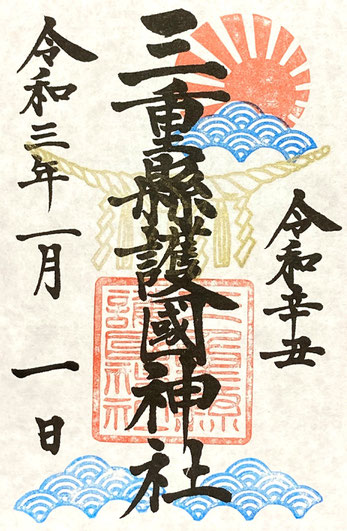 令和辛丑
三重縣護國神社
令和三年一月一日